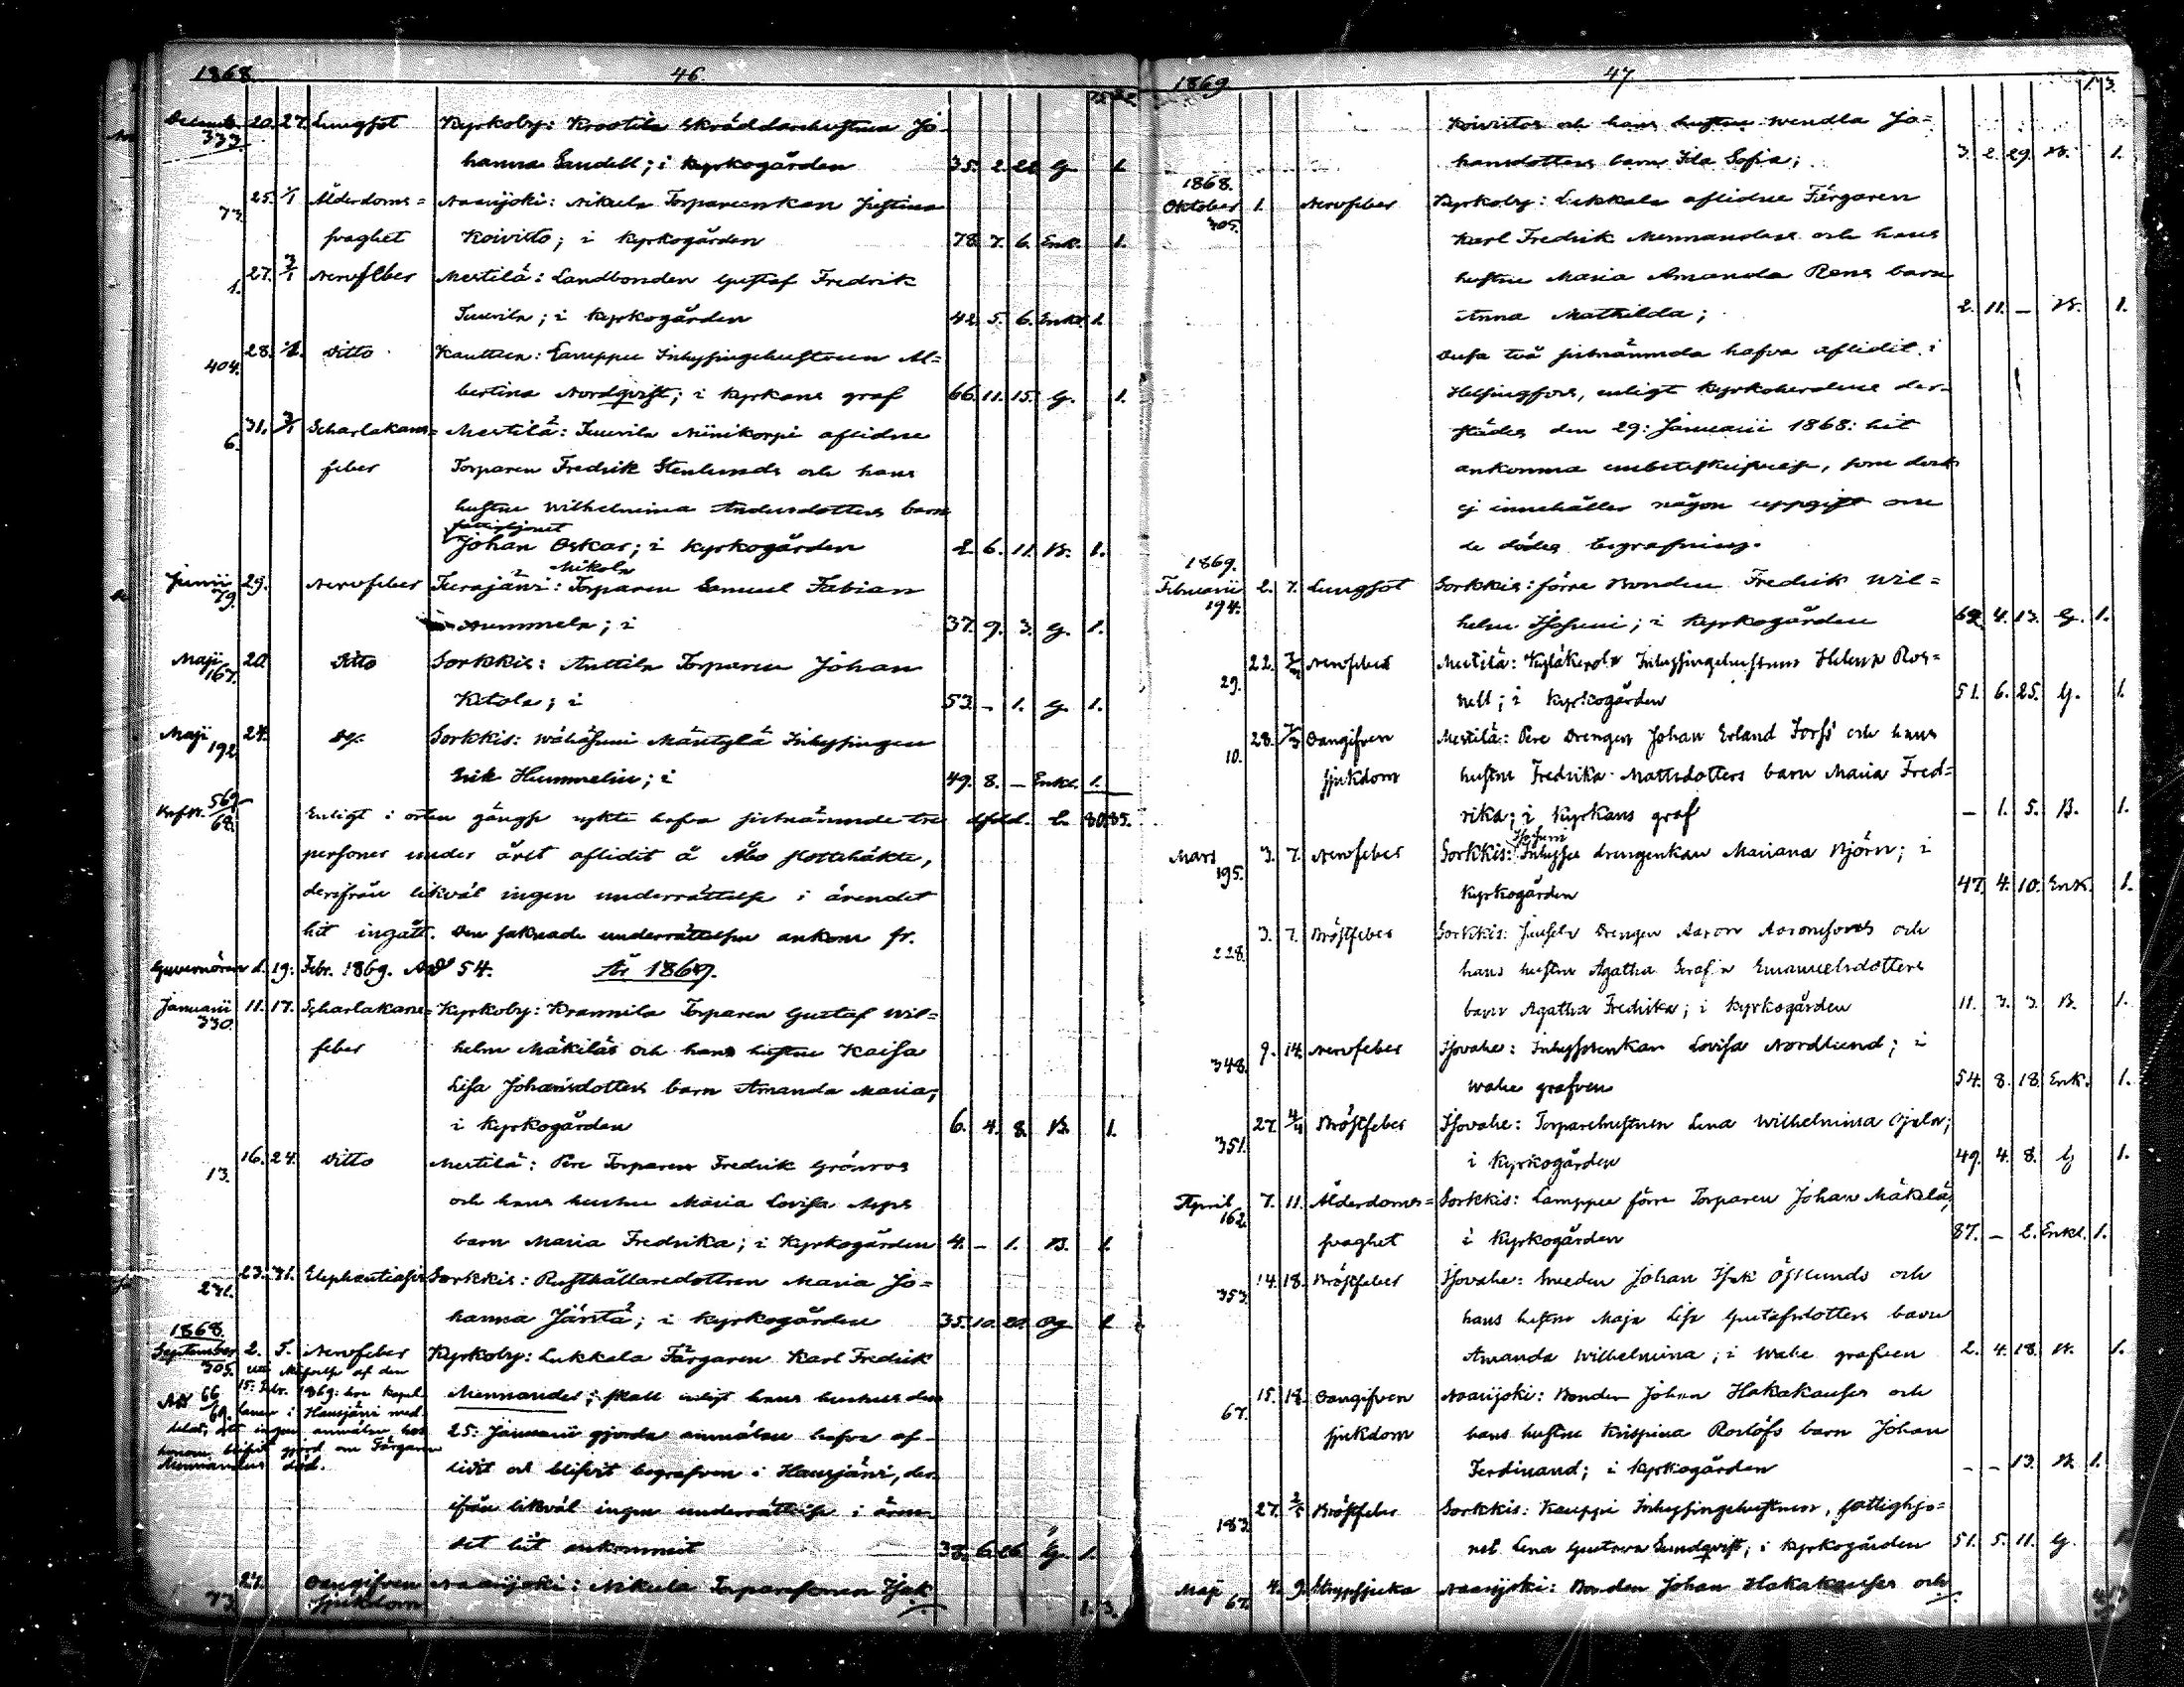 1868. 46.
December 20. 27. Lungsot Kyrkoby: Krootila skräddarehustrun Jo-
333. hanna Sandell; i kyrkogården 35. 2. 22. G. 1.
25. 1/1 Ålderdoms= Naarijoki: Nikula Torpareenkan Justina
73. svaghet Koivisto; i kyrkogården 78. 7. 6. Enk. 1.
27. 3/1 Nervfeber Mestilä: Landbonden Gustaf Fredrik
1. Tuurila; i kyrkogården 42. 5. 6. Enkl. 1.
28. Ditto Kauttua: Lamppu Inhysingehustrun Al-
404. bertina Nordqvist; i kyrkans graf 66. 11. 15. G. 1.
31. 3/1 Scharlakans= Mestilä: Tuurila Niinikorpi aflidne
6. feber Torparen Fredrik Stenlunds och hans
hustru Wilhelmina Andersdotters barn
fattighjonet
Johan Oskar; i kyrkogården 2. 6. 11. B. 1.
Mikola
Junii 29. Nervfeber Turajärvi: Torparen Samuel Fabian
79. Nummela; i 37. 9. 3. G. 1.
Maji 20. Ditto Sorkkis: Anttila Torparen Johan
167. Ketola; i 53. – 1. G. 1.
Maji 24. Sorkkis: Wähäjuni Mäntylä Inhysingen
192. Erik Hummelin; i 49. 8. – Enkl. 1.
569/68. Enligt i orten gängse rykte hafva sistnämnde tre 80. 85.
personer under året aflidit å Åbo slottshäkte,
dersifrån likväl ingen underrättelse i ärendet
hit ingått. Den saknade underrättelsen ankom fr.
Guvernören d. 19. Febr. 1869. No 54. År 1869.
Januarii 11. 17. Scharlakans= Kyrkoby: Krannila Torparen Gustaf Wil=
330. feber helm Mäkiläs och hans hustru Kaisa
Lisa Johansdotters barn Amanda Maria;
i kyrkogården 6. 4. 8. B. 1.
16. 24. Ditto Mestilä: Pere Torparen Fredrik Grönroos
13. och hans hustru Maria Lovisa
barn Maria Fredrika; i kyrkogården 4. – 1. B. 1.
23. 31. Elephantiasis Sorkkis: Rusthållaredottren Maria Jo=
271. hanna Järstä; i kyrkogården 35. 10. Og. 1.
1868.
September 2. Nervfeber Kyrkoby: Lukkala Färgaren Karl Fredrik
305. af den
15. Febr. 1869. Kapel- Mennander; skall enligt hans hustrus den
lanen i Hausjärvi med- 25. Januarii gjorda anmälan hafva af-
delat, att ingen anmälan hos
honom blifvit gjord om Färgaren
Mennanders död. lidit och blifvit begrafven i Hausjärvi, der-
ifrån likväl ingen underrättelse i ären-
det hit ankommit 38. 6. 26. G. 1.
27. Oangifven Naarijoki: Nikula Torparesonen Isak
73. sjukdom 1. 3.
1869. 47. 1. 3.
Koivistos och hans hustru Wendla Jo=
hansdotters barn Ida Sofia; 3. 2. 29. B. 1.
1868.
Oktober 1. Nervfeber Kyrkoby: Lukkala aflidne Färgaren
305. Karl Fredrik Mennanders och hans
hustru Maria Amanda Rens barn
Anna Mathilda; 2. 11. – B. 1.
Dessa två sistnämnda hafva aflidit i
Helsingfors, enligt Kyrkoherdens der-
städes den 29. Januarii 1868: hit
ankomna embetsskrifvelse, som dock
ej innehåller någon uppgift om
de dödes begrafning.
1869.
Februarii 2. 7. Lungsot Sorkkis: förre Bonden Fredrik Wil=
194. helm Isojuni; i kyrkogården 69. 4. 13. G. 1.
22. Nervfeber Mestilä: Kyläkarola Inhysingehustrun Helena Ros=
29. nell; i kyrkogården 51. 6. 25. G. 1.
28. 7/3 Oangifven Mestilä: Pere Drengen Johan Erland Forss och hans
10. sjukdom hustru Fredrika Mattsdotters barn Maria Fred=
rika; i kyrkans graf – 1. 5. B. 1.
Isojuni
Mars 3. 7. Nervfeber Sorkkis: Inhyses drengenkan Mariana Björn; i
195. kyrkogården 47. 4. 10. Enk. 1.
3. 7. Bröstfeber Sorkkis: Juusela Drengen Aaron Aaronssons och
228. hans hustru Agatha Serafia Emanuelsdotters
barn Agatha Fredrika; i kyrkogården 11. 3. 3. B. 1.
9. 14. Nervfeber Isovahe: Inhysesenkan Lovisa Nordlund; i
348. wahe grafven 54. 8. 18. Enk. 1.
27. 4/4 Bröstfeber Isovahe: Torparehustrun Lena Wilhelmina Ojala;
351. i kyrkogården 49. 4. 8. G 1.
April 7. 11. Ålderdoms= Sorkkis: Lamppu förre Torparen Johan Mäkelä;
162. svaghet i kyrkogården 87. – 2. Enkl. 1.
14. 18. Bröstfeber Isovahe: Smeden Johan Isak Östlunds och
353. hans hustru Maja Lisa Gustafsdotters barn
Amanda Wilhelmina; i wahe grafven 2. 4. 18. B. 1.
15. 18. Oangifven Naarijoki: Bonden Johan Hakakauses och
67. sjukdom hans hustru Krispina Roslöfs barn Johan
Ferdinand; i kyrkogården – – 13. B. 1.
27. 2/5 Bröstfeber Sorkkis: Kauppi Inhysingehustrun, fattighjo=
183. net Lena Gustava Sundqvist; i kyrkogården 51. 5. 11. G. 1
Maji 4. 9. Strypsjuka Naarijoki: Bonden Johan Hakakauses och
67.